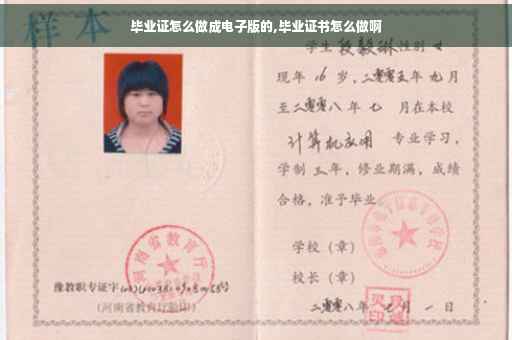 毕业证怎么做成电子版的,毕业证书怎么做啊
样本
学生段毅琳性别女
现年16岁，二零零五年九月
至二零零八年七月在本校
计算机应用 专业学习，
学制三年，修业期满，成绩
合格，准予毕业
学校（章）
校长（章）
二零零八年 月一日
河南省教育厅
豫教职专证字
(河南省教育厅验印)